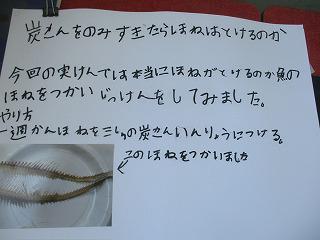 炭さんをのみすぎたらほねはとけるのか
今回の実けんでは本当にほねがとけるのか魚の
ほねをつかいじっけんをしてみました。
やり方
一週かんほねを三しゅの炭さんいんりょうにつける。
このほねをつかいました